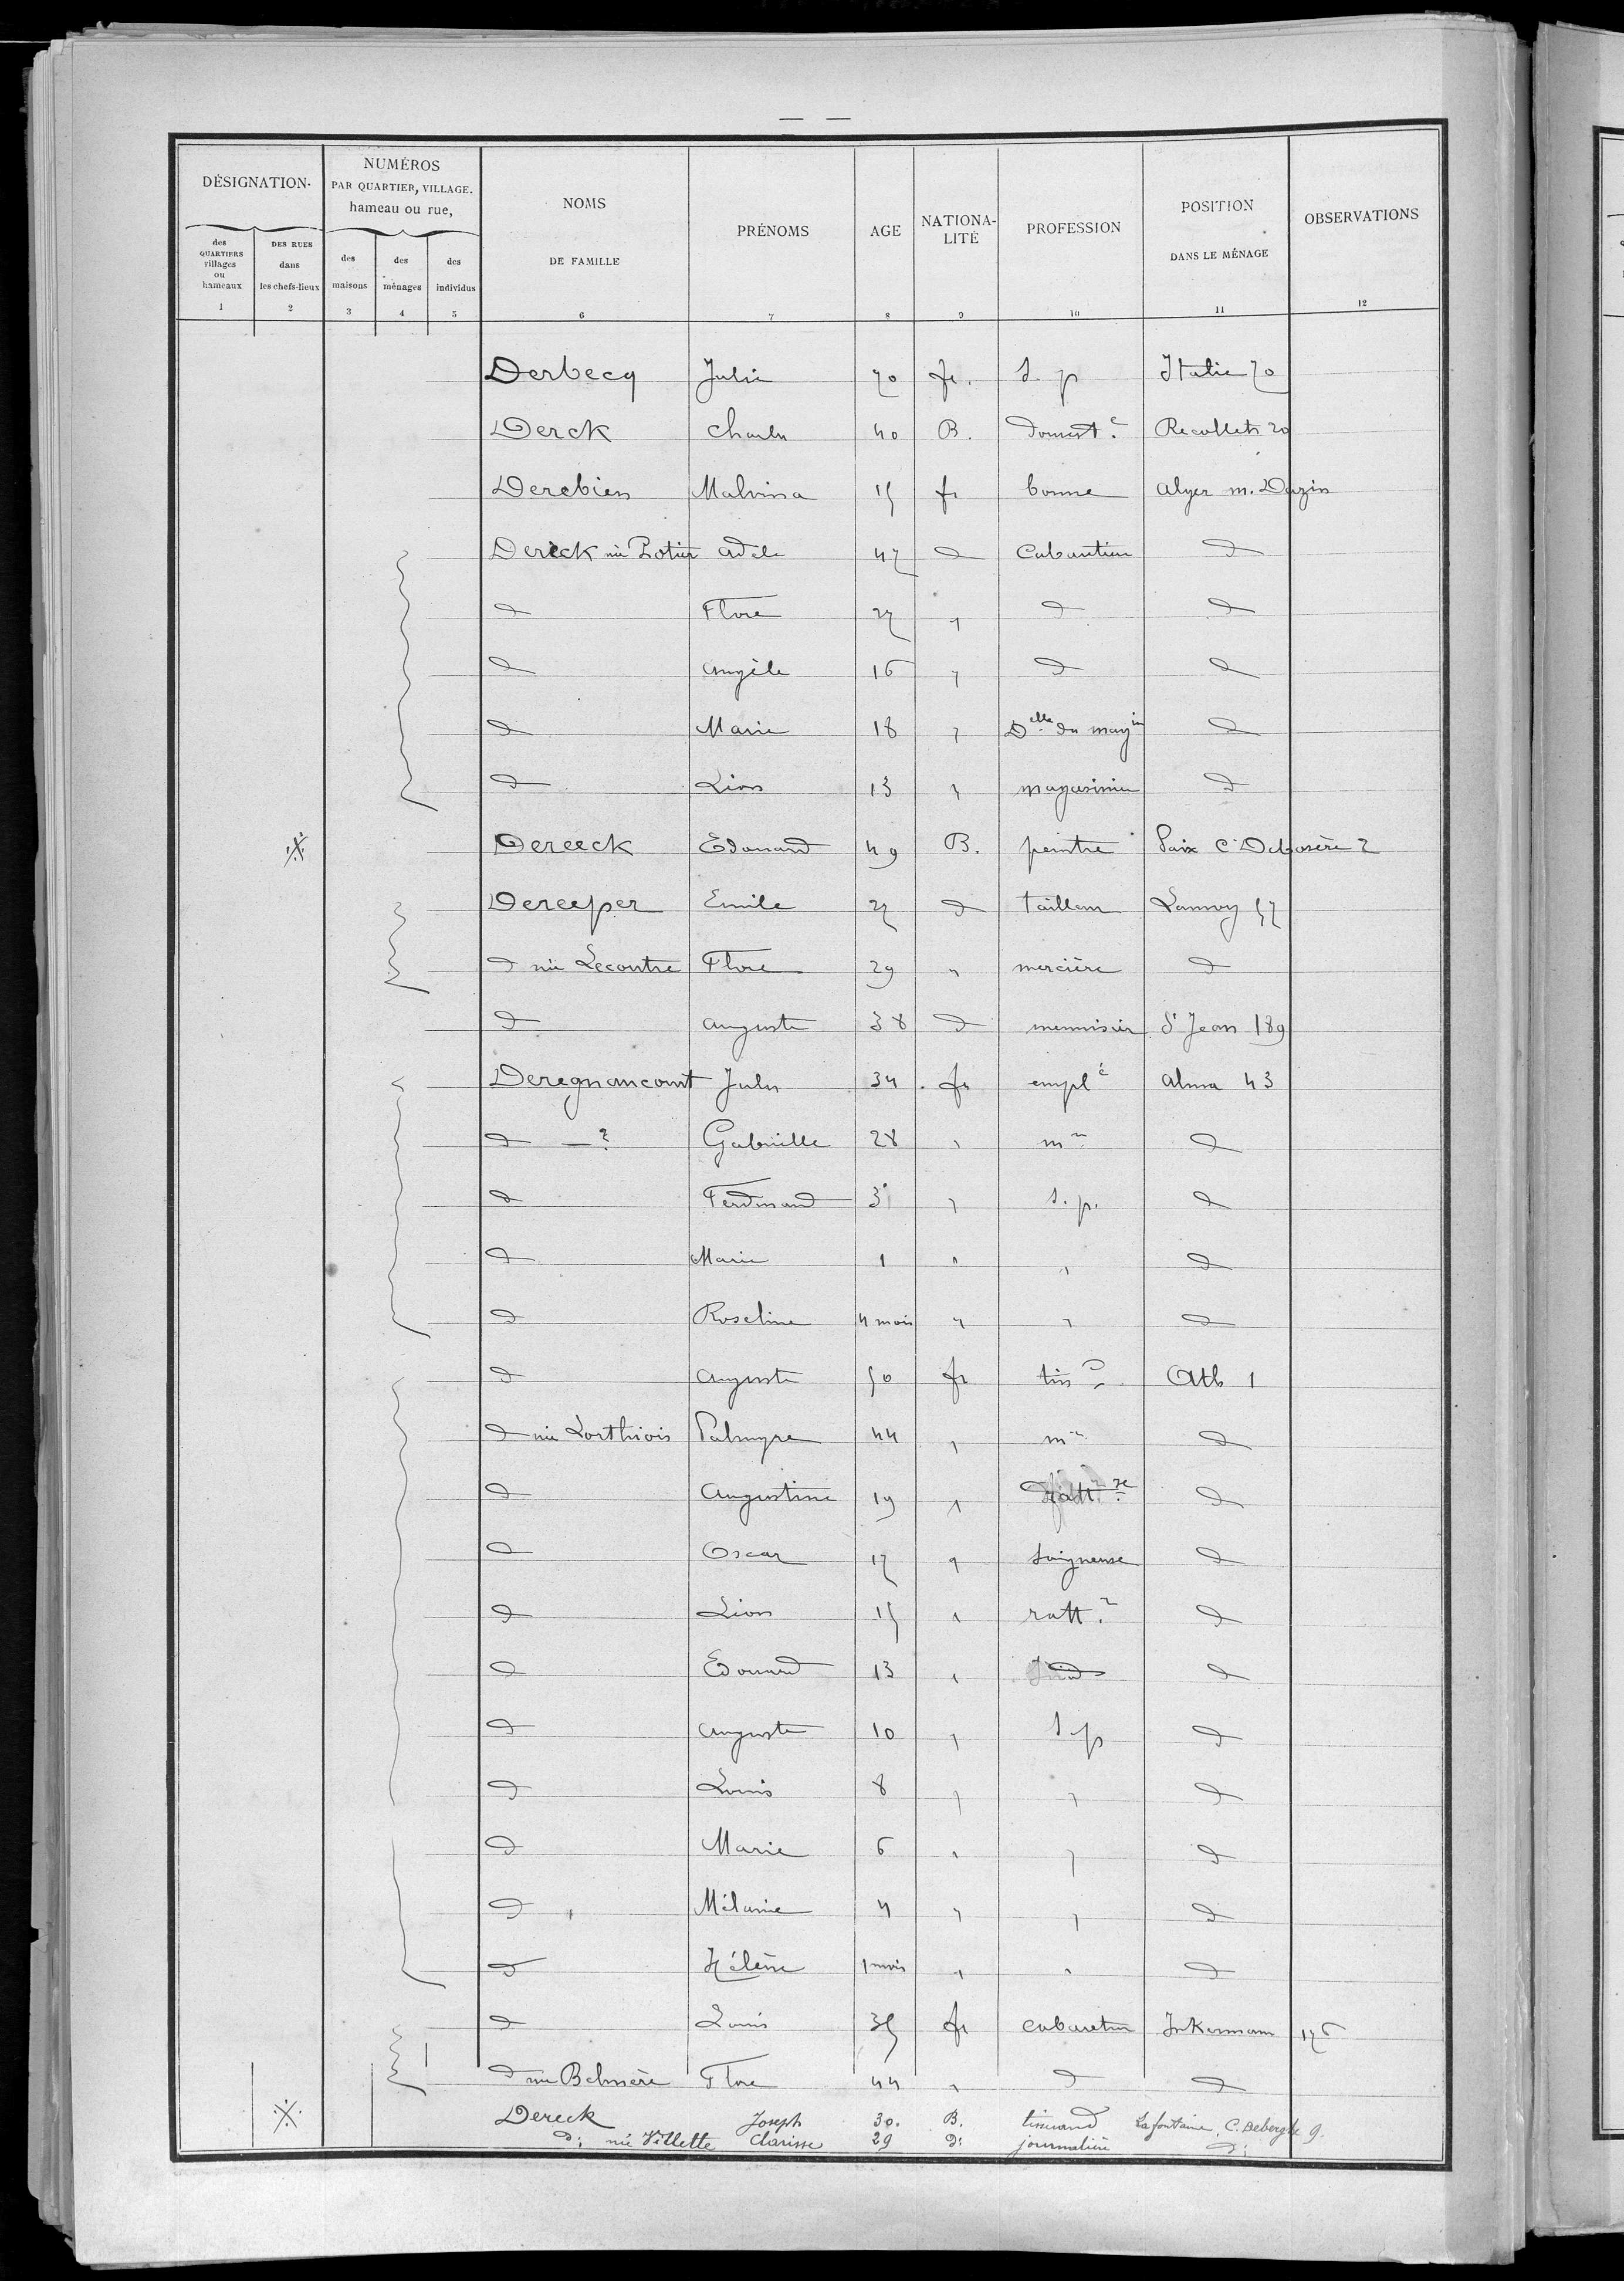 DÉSIGNATION. NUMÉROS PAR QUARTIER, VILLAGE. hameau ou rue, NOMS DE FAMILLE PRÉNOMS AGE NATIONA-LITÉ PROFESSION POSITION DANS LE MÉNAGE OBSERVATIONS
des QUARTIERS villages ou hameaux DES RUES dans les chefs-lieux des maisons des ménages des individus
1 2 3 4 5 6 7 8 9 10 11 12
Derbecq Julie 70 fr. s. p Italie 70
Derck Charles 40 B. domest.e Recollets 20
Derebien Malvina 15 fr bonne Alger m. Dazin
Dereck née Potier Adèle 47 d Cabaretier d
d Flore 27 " d d
d Angèle 16 " d d
d Marie 18 " Delle du magin d
d Léon 13 " magasinier d
Dereeck Edouard 49 B. peintre Paix C. Debosère 2
Dereeper Emile 27 d tailleur Lannoy 57
d née Lecontre Flore 29 " mercière d
d Auguste 38 d menuisier St Jean 189
Deregnaucourt Jules 34 fr emplé Alma 43
d — ? Gabrielle 28 " mre d
d Ferdinand 3 " s. p. d
d Marie 1 " " d
d Roseline 4 mois " " d
d Auguste 50 fr tisd Ath 1
d née Lorthiois Palmyre 44 " mre d
d Augustine 19 " d
d Oscar 17 " soigneuse d
d Léon 15 " ratt.r d
d Edouard 13 " d d
d Auguste 10 " s. p d
d Louis 8 " " d
d Marie 6 " " d
d Mélanie 4 " " d
d Hélène 1 mois " " d
d Louis 35 fr cabaretier Inkermann 176
d née Belmère Flore 44 " d d
Dereck Joseph 30. B. tisserand Lafontaine, C. Deberghe 9.
d: née Villette Clarisse 29 d: journalière d: